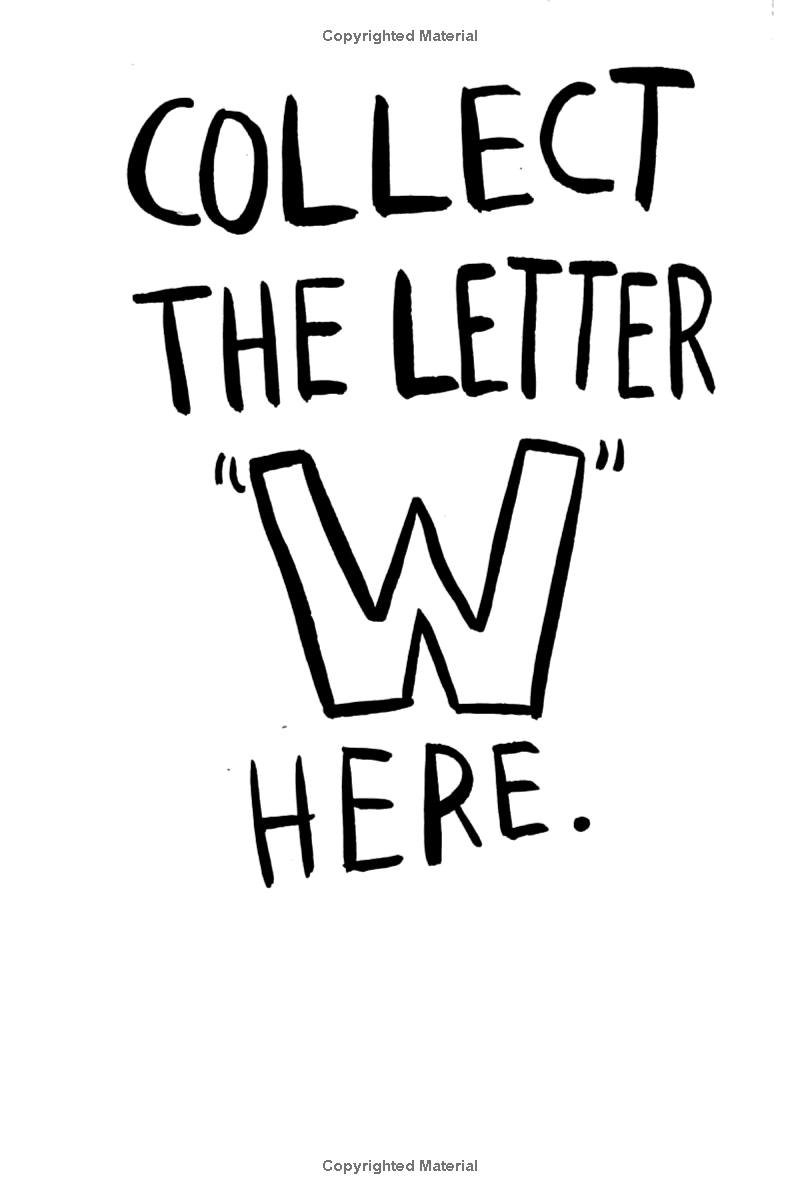 Copyrighted Material
COLLECT
THE LETTER
"W"
HERE.
Copyrighted Material